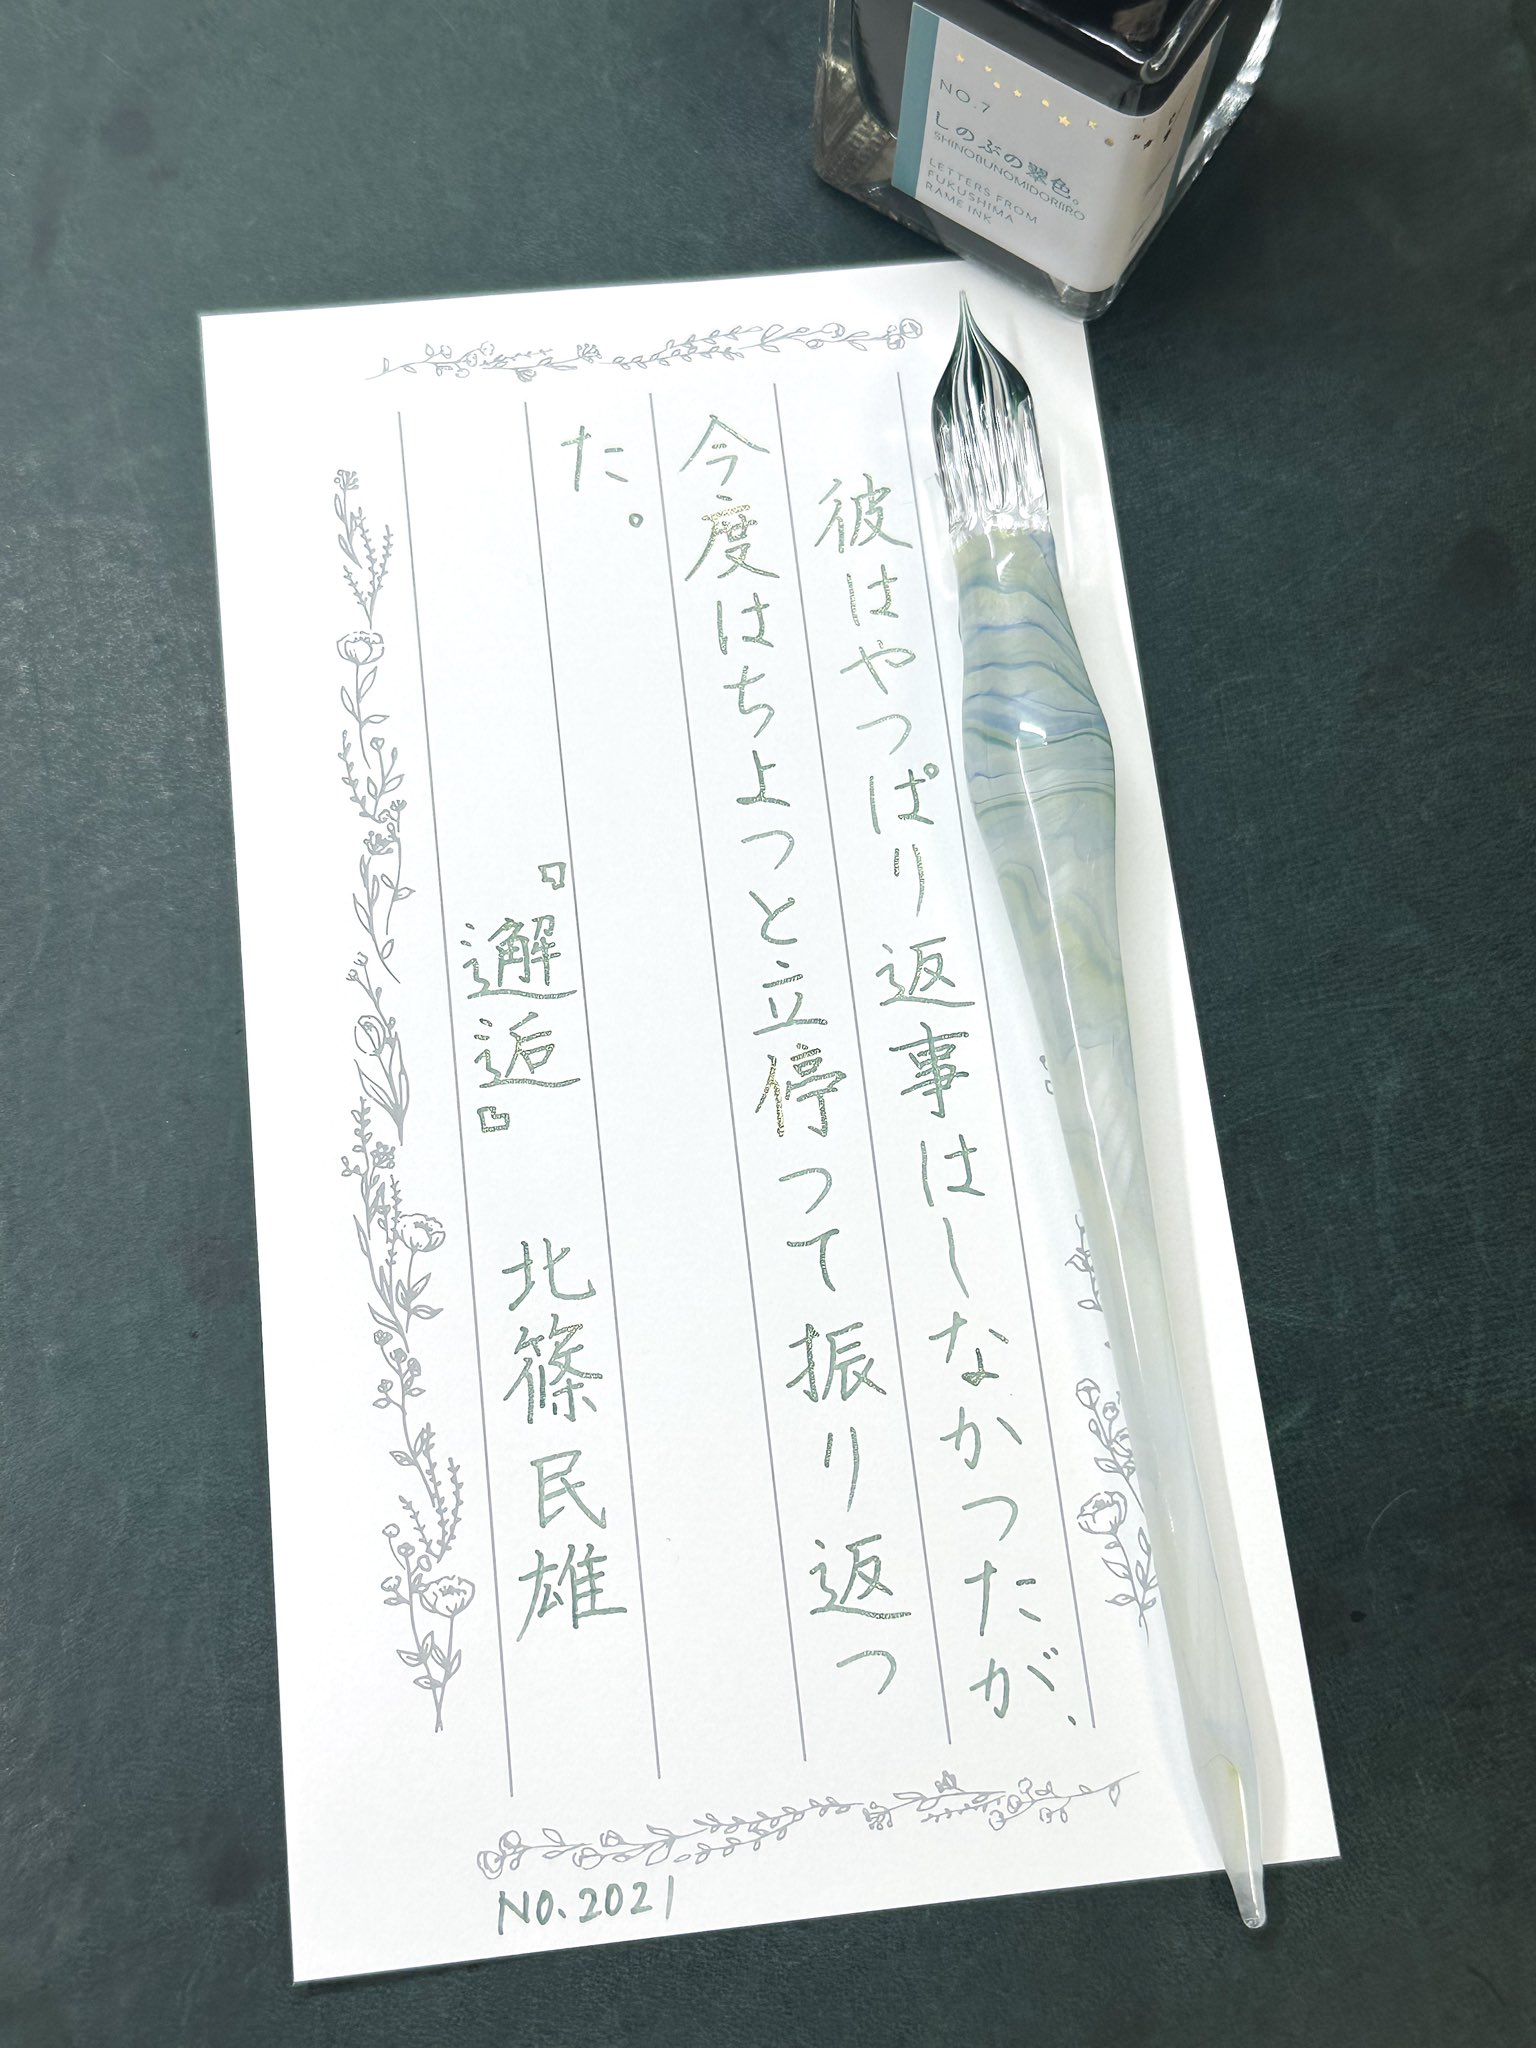 NO.7
しのぶの翠色。
SHINOBUNOMIDORIIRO
LETTERS FROM
FUKUSHIMA
RAME INK
彼はやつぱり返事はしなかつたが、
今度はちよつと立停つて振り返つ
た。
『邂逅』 北篠民雄
NO.2021